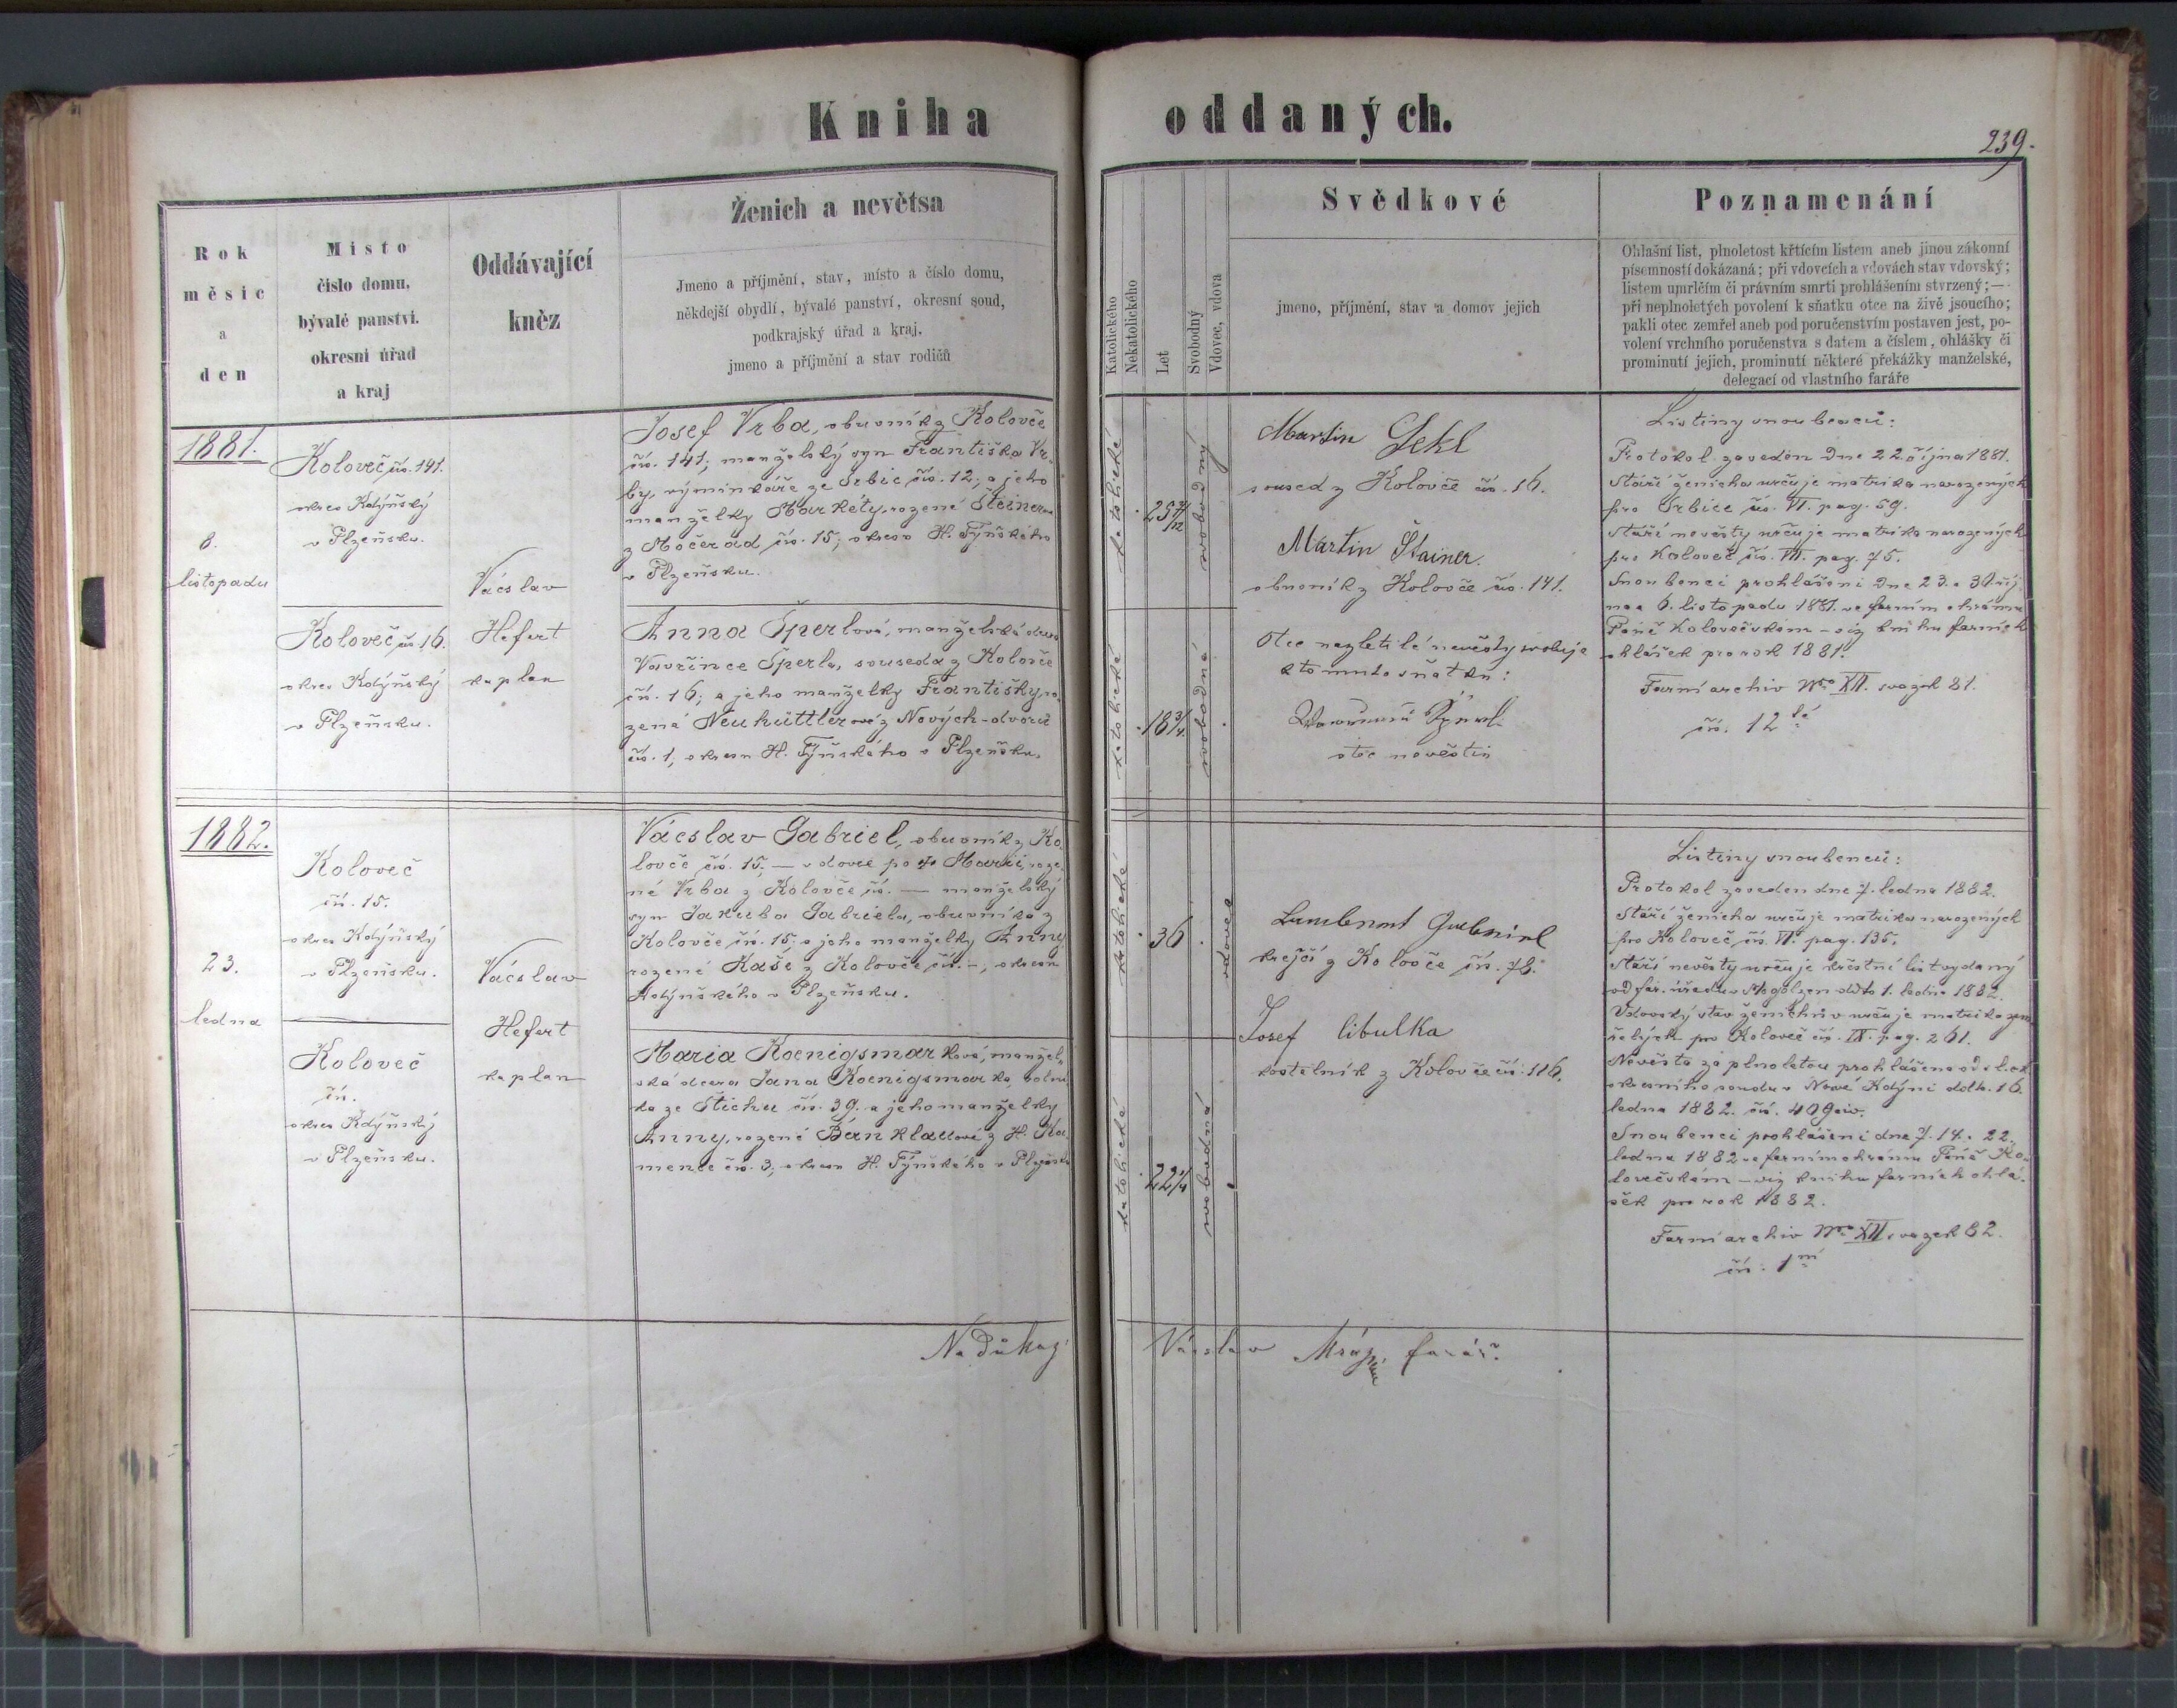 Kniha oddaných.
239.
Rok
měsíc
a
den
Místo
číslo domu,
bývalé panství.
okresní úřad
a kraj
Oddávající
kněz
Ženich a nevětsa
Jmeno a příjmění, stav, místo a číslo domu,
někdejší obydlí, bývalé panství, okresní soud,
podkrajský úřad a kraj.
jmeno a příjmění a stav rodičů
Katolického
Nekatolického
Let
Svobodný
Vdovec, vdova
Svědkové
jmeno, příjmění, stav a domov jejich
Poznamenání
Ohlašní list, plnoletost křtícím listem aneb jinou zákonní
písemností dokázaná; při vdovcích a vdovách stav vdovský;
listem umrlčím či právním smrti prohlášením stvrzený;—
při neplnoletých povolení k sňatku otce na živě jsoucího;
pakli otec zemřel aneb pod poručenstvím postaven jest, po-
volení vrchního poručenstva s datem a číslem, ohlášky či
prominutí jejich, prominutí některé překážky manželské,
delegací od vlastního faráře
1881.
8.
listopadu
Koloveč čís. 141.
okres Kdýňský
v Plzeňsku.
Koloveč čís. 16.
okres Kdýňský
v Plzeňsku.
Vácslav
Hefert
kaplan
Josef Vrba, obuvník z Kolovče
čís. 141; manželský syn Františka Vr-
by, výminkáře ze Srbic čís. 12; a jeho
manželky Markéty, rozené Šteinerov
z Močerad čís. 15; okresu H. Týnského
v Plzeňsku.
Anna Šperlová, manželská dcera
Vavřince Šperla, souseda z Kolovče
čís. 16; a jeho manželky Františky, ro-
zené Neuhüttlerové z Nových-dvorů
čís. 1, okresu H. Týnského v Plzeňsku.
katolické
25
svobodný
katolické
18 3/4.
svobodná
Martin Sekl
soused z Kolovče čís. 16.
Martin Štainer.
obuvník z Kolovče čís. 141.
Otec nezletilé nevěsty svoluje
k tomuto sňatku:
otec nevěstin
Listiny snoubenců:
Protokol zaveden dne 22. října 1881.
Stáří ženicha určuje matrika narozených
pro Srbice čís. VI. pag. 59.
Stáří nevěsty určuje matrika narozených
pro Koloveč čís. VII. pag. 75.
Snoubenci prohlášeni dne 23. a 30. říj-
na a 6. listopadu 1881. ve farním chrámu
Páně Kolovečském – viz knihu farních
ohlášek pro rok 1881.
Farní archiv Nro XII. svazek 81.
čís. 12té
1882.
23.
ledna
Koloveč
čís. 15.
okres Kdýňský
v Plzeňsku.
Koloveč
čís.
okres Kdýňský
v Plzeňsku.
Vácslav
Hefert
kaplan
Vácslav Gabriel, obuvník z Ko-
lovče čís. 15; — vdovec po † Marii, roze-
né Vrba z Kolovče čís. — manželský
syn Jakuba Gabriela, obuvníka z
Kolovče čís. 15; a jeho manželky Anny,
rozené Kaše z Kolovče, čís. –; okresu
Kdýnského v Plzeňsku.
Maria Koenigsmarková, manžel-
ská dcera Jana Koenigsmarka, rolní-
ka ze Štichu čís. 39. a jeho manželky
Anny, rozené Bänklallové z H. Ka-
menic čís. 3; okresu H. Týnského v Plzeňsku
katolické
36
vdovec
katolické
22 1/4
svobodná
Lambert Gabriel
krejčí z Kolovče čís. 78.
Josef Cibulka
kostelník z Kolovče čís. 116.
Listiny snoubenců:
Protokol zaveden dne 7. ledna 1882.
Stáří ženicha určuje matrika narozených
pro Koloveč čís. VI. pag. 135.
Stáří nevěsty určuje křestní list vydaný
od far. úřadu v Mogolzen ddto 1. ledna 1882.
Vdovský stav ženichův určuje matrika zem-
řelých pro Koloveč čís. IX. pag. 261.
Nevěsta za plnoletou prohlášena od sl. c.k.
okresního soudu v Nové Kdýni ddto. 16.
ledna 1882. čís. 409 civ.
Snoubenci prohlášeni dne 7. 14. a 22.
ledna 1882 ve farním chrámu Páně Ko-
lovečském – viz knihu farních ohlá-
šek pro rok 1882.
Farní archiv Nro XII svazek 82.
čís. 1ní
Na důkaz: Vácslav Mráz, farář.